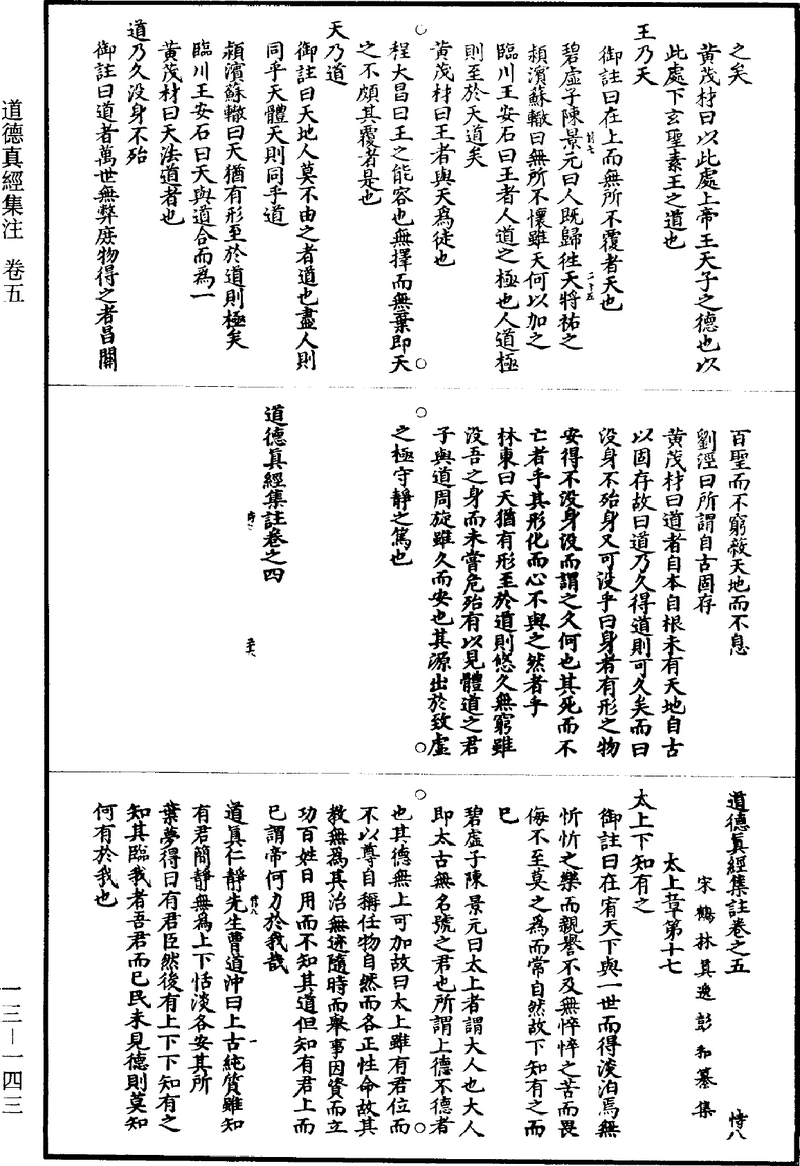 道德真經集注 卷五
之矣
黄茂材曰以此處上帝王天子之德也以
此處下玄聖素王之道也
王乃天
御註曰在上而無所不覆者天也
碧虛子陳景元曰人既歸徃天將祐之
頴濱蘇轍曰無所不懷雖天何以加之
臨川王安石曰王者人道之極也人道極
則至於天道矣
黄茂材曰王者與天爲徒也
程大昌曰王之能容也無擇而無棄即天
之不頗其覆者是也
天乃道
御註曰天地人莫不由之者道也盡人則
同乎天體天則同乎道
頴濱蘇轍曰天猶有形至於道則極矣
臨川王安石曰天與道合而爲一
黄茂材曰天法道者也
道乃久没身不殆
御註曰道者萬世無弊庶物得之者昌關
百聖而不窮蔽天地而不息
劉涇曰所謂自古固存
黄茂材曰道者自本自根未有天地自古
以固存故曰道乃久得道則可久矣而曰
没身不殆身又可没乎曰身者有形之物
安得不没身没而謂之久何也其死而不
亡者乎其形化而心不與之然者乎
林東曰天猶有形至於道則悠久無窮雖
没吾之身而未嘗危殆有以見體道之君
子與道周旋雖久而安也其源出於致虛
之極守靜之篤也
道德真經集註卷之四
道德真經集註卷之五 恃八
宋鶴林真逸彭耜纂集
太上章第十七
太上下知有之
御註曰在宥天下與一世而得淡泊焉無
忻忻之樂而親譽不及無悴悴之苦而畏
侮不至莫之爲而常自然故下知有之而
已
碧虛子陳景元曰太上者謂大人也大人
即太古無名號之君也所謂上德不德者
也其德無上可加故曰太上雖有君位而
不以尊自稱任物自然而各正性命故其
教無爲其治無迹隨時而舉事因資而立
功百姓日用而不知其道但知有君上而
已謂帝何力於我哉
道真仁靜先生曹道沖曰上古純質雖知
有君簡靜無爲上下恬淡各安其所
葉夢得曰有君臣然後有上下下知有之
知其臨我者吾君而已民未見德則莫知
何有於我也
一三—一四三